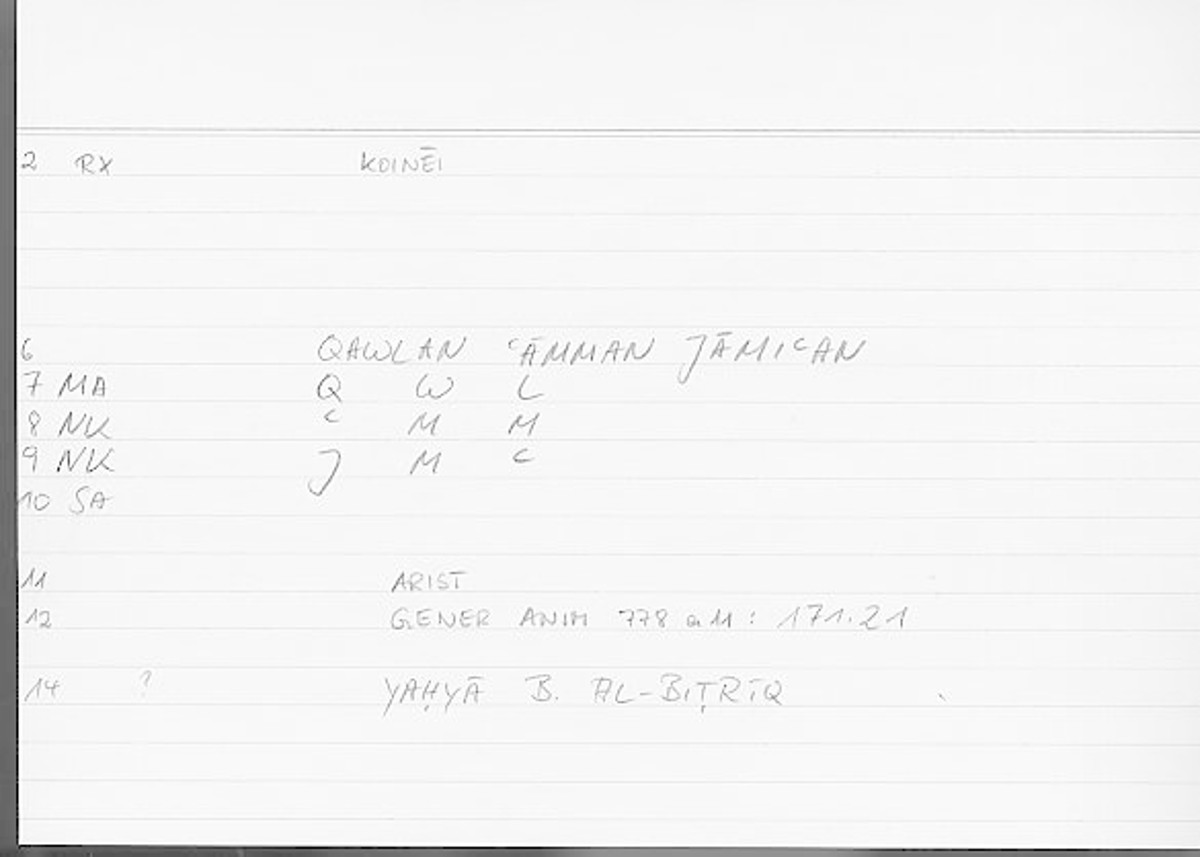 2 RX KOINĒI
6 QAWLAN ʿĀMMAN JĀMIʿAN
7 MA Q W L
8 NK ʿ M M
9 NK J M ʿ
10 SA
11 ARIST
12 GENER ANIM 778 a 11 : 171.21
14 ? YAḤYĀ B. AL-BIṬRĪQ